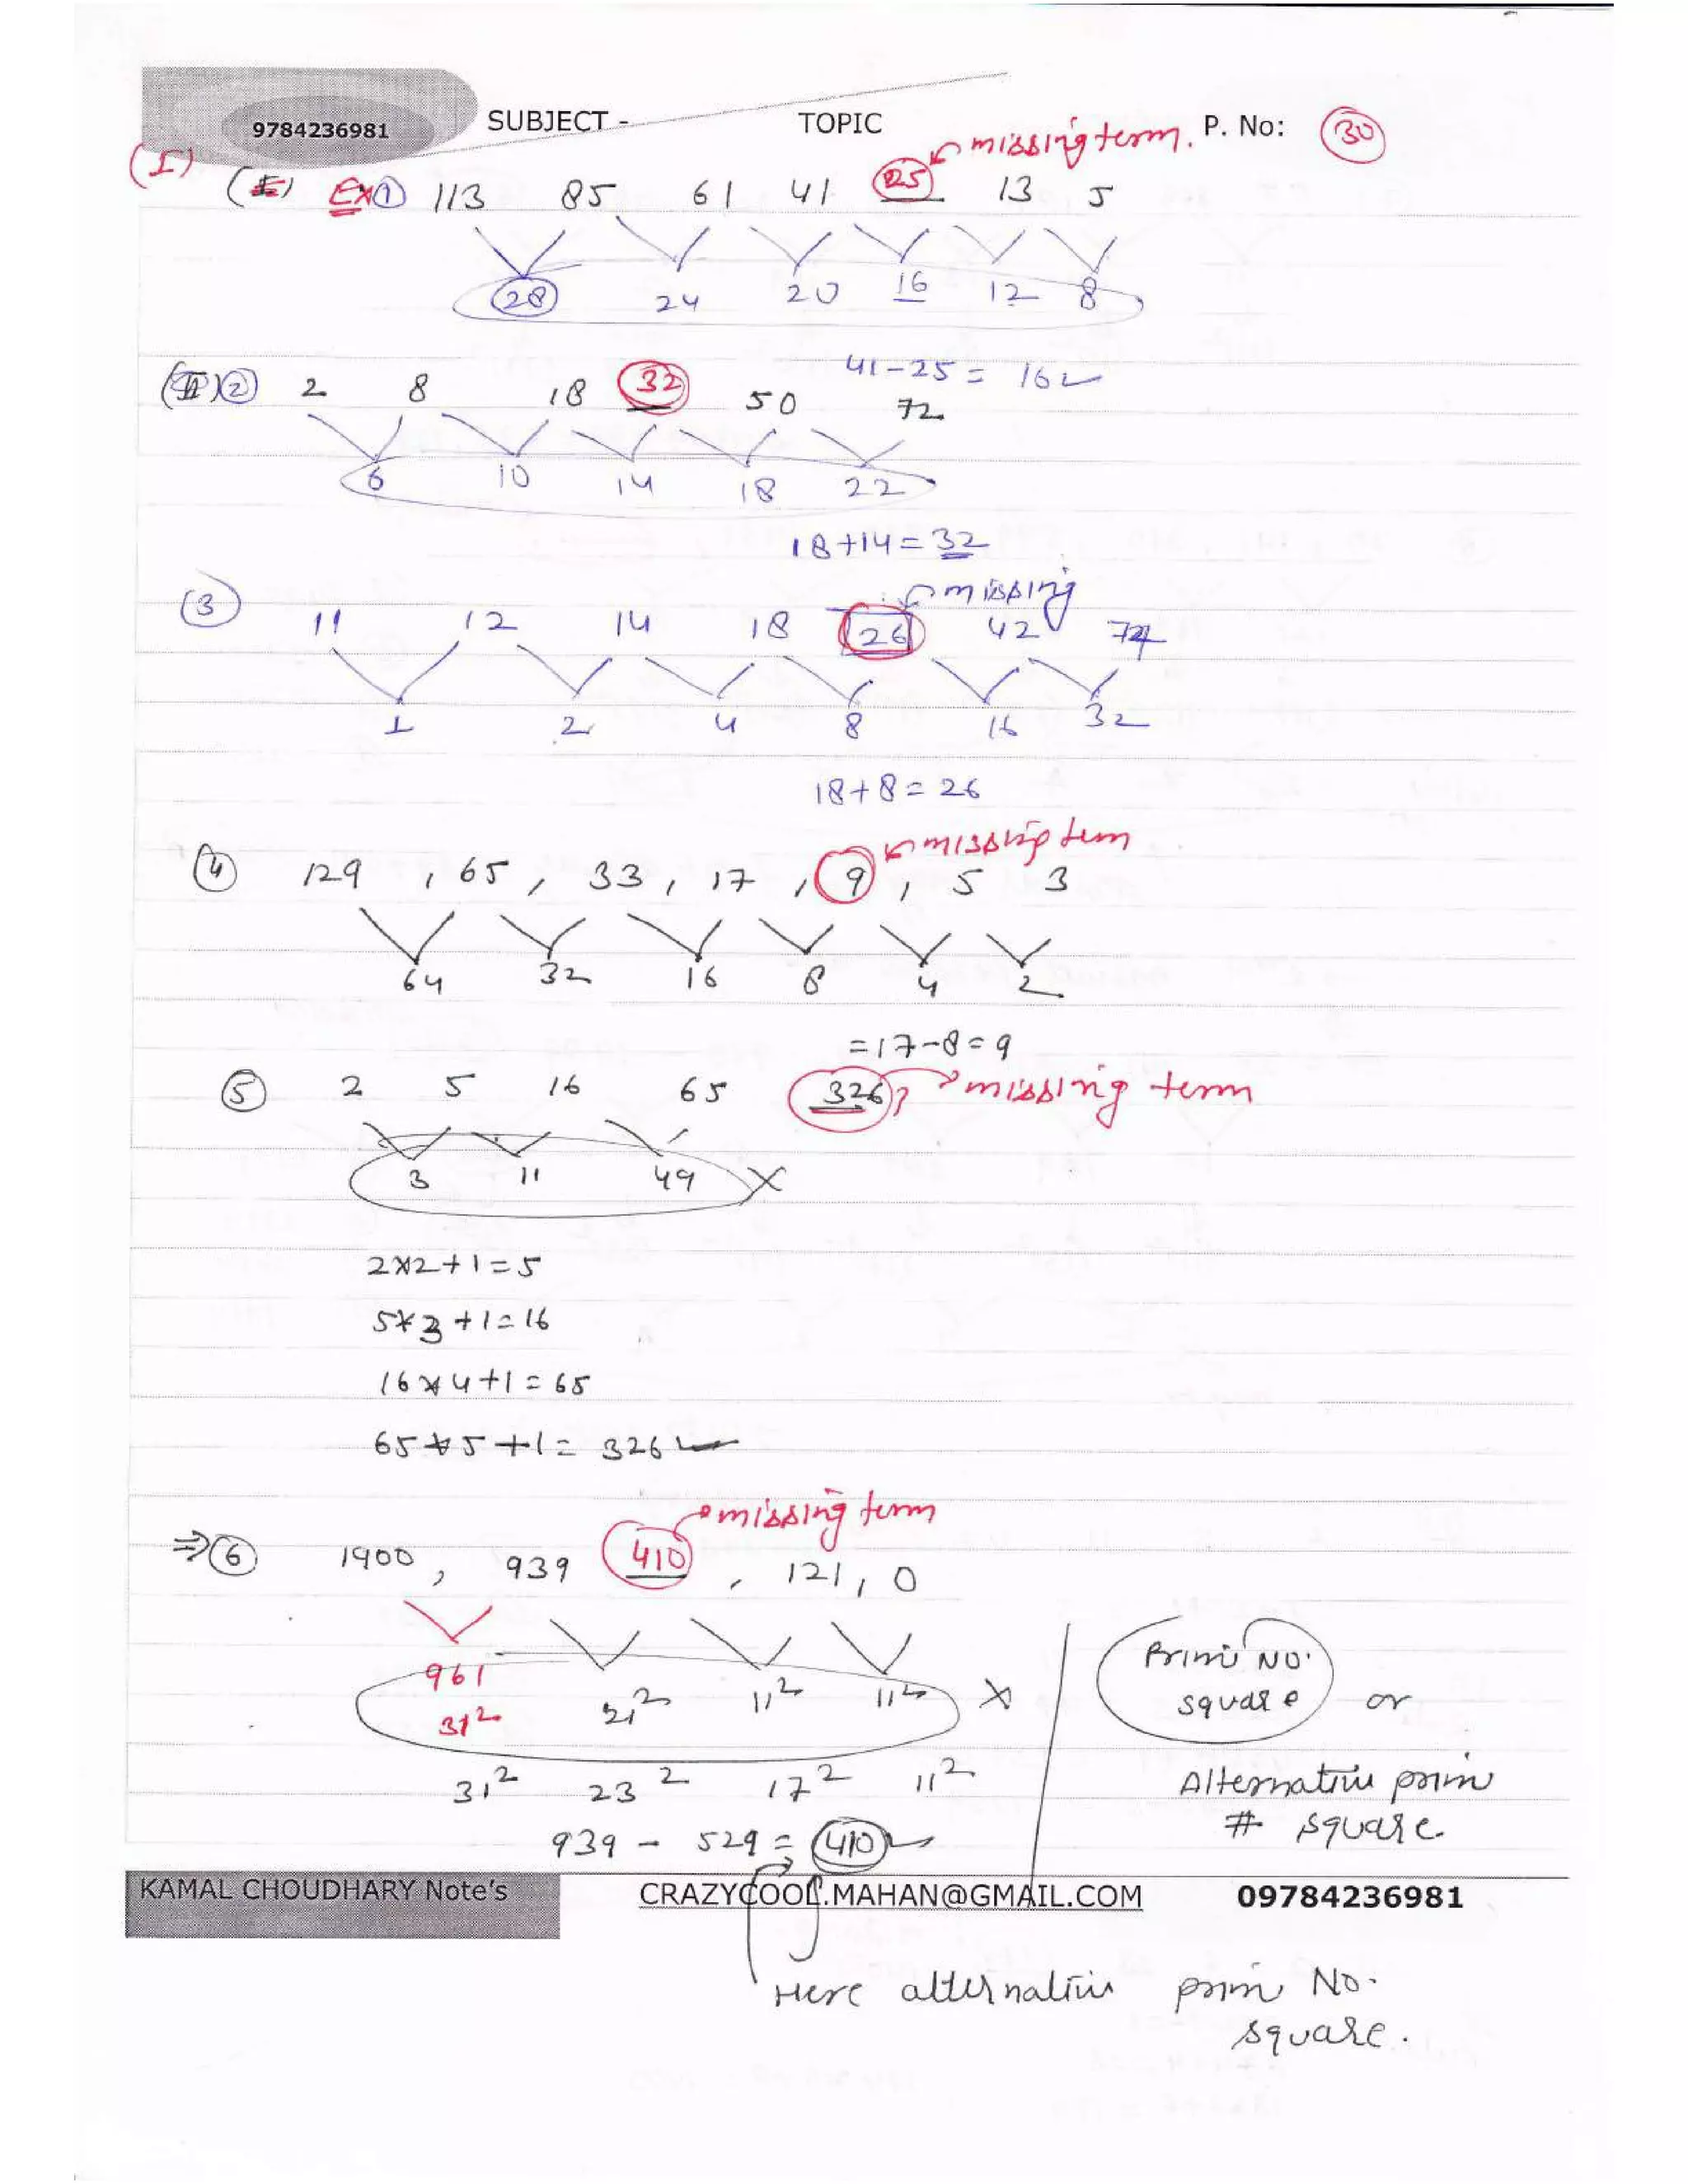 9784236981 SUBJECT - TOPIC P. No: 30
missing term.
(I) Ex ① 113 85 61 41 25 13 5
28 24 20 16 12 8
41-25 = 16
② 2 8 18 32 50 72
6 10 14 18 22
18+14=32
missing
③ 11 12 14 18 26 42 74
1 2 4 8 16 32
18+8=26
missing term
④ 129 , 65 , 33 , 17 , 9 , 5 3
64 32 16 8 4 2
=17-8=9
⑤ 2 5 16 65 326? missing term
3 11 49 X
2*2+1=5
5*3+1=16
16*4+1=65
65*5+1=326
missing term
⇒⑥ 1900 , 939 410 , 121 , 0
961
31² 21² 11² 11² X
Prime No.
square or
31² 23² 17² 11²
Alternative prime
# square.
939 - 529 = 410
KAMAL CHOUDHARY Note's CRAZYCOOL.MAHAN@GMAIL.COM 09784236981
Here alternative prime No.
square.